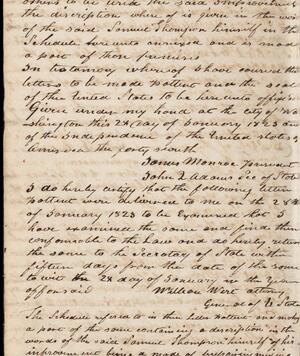 others to be used the said improvement
the discription where of is given in the words
of the said Samuel Thompson himself in the
Schedule here unto annexed and is made
a part of these presents
In testamony where of I have caused these
letters to be made Pattent and the seal
of the United States to be here unto affixed
Given under my hand at the city of Wa
shington this 28 day of January 1823 and
of the Independence of the United States
America the forty seventh
James Monroe President
John Q Adams Sec of State
I do hereby certify that the following letters
Pattent were delivered to me on the 28th
of January 1823 to be Examined that I
have examined the same and find them
conformable to the Law and do hereby return
the same to the Secratay of State within
fifteen days from the date of the same
to wit this 28 day of January in the year
afforesaid William Wirt attorny
General of U State
The Schedule refered to in this Letters Pattent and making
a part of the same containing a description in the
words of the said Samuel Thompson himself of his
improvement being a mode of